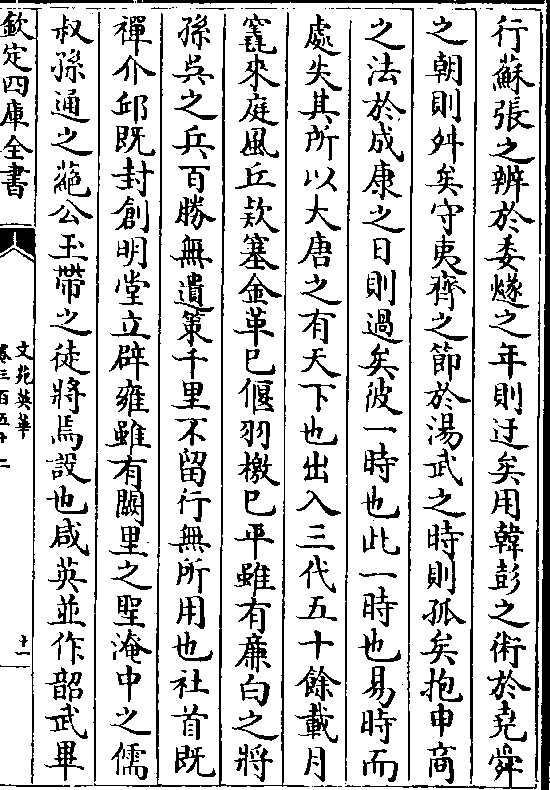 行蘇張之辨於委燧之年則迂矣用韓彭之術於堯舜
之朝則舛矣守夷齊之節於湯武之時則孤矣抱申商
之法於成康之日則過矣彼一時也此一時也易時而
處失其所以大唐之有天下也出入三代五十餘載月
窟來庭風丘款塞金革已偃羽檄已平雖有廉白之將
孫吳之兵百勝無遺策千里不留行無所用也社首既
禪介邱既封創明堂立辟雍雖有闕里之聖淹中之儒
叔孫通之蕝公玉帶之徒將焉設也咸英並作韶武畢
欽定四庫全書
文苑英華
卷三百五十二
十一